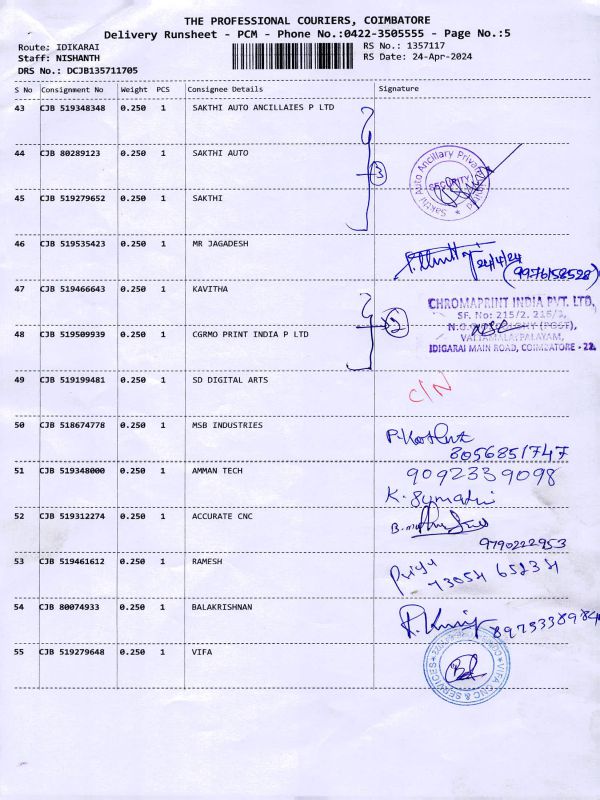 THE PROFESSIONAL COURIERS, COIMBATORE
Delivery Runsheet - PCM - Phone No.:0422-3505555 - Page No.:5
Route: IDIKARAI
RS No.: 1357117
Staff: NISHANTH
RS Date: 24-Apr-2024
DRS No.: DCJB135711705
S No Consignment No Weight PCS Consignee Details Signature
43 CJB 519348348 0.250 1 SAKTHI AUTO ANCILLAIES P LTD
44 CJB 80289123 0.250 1 SAKTHI AUTO
3
Sakthi Auto Ancillary Private Limited
SECURITY
45 CJB 519279652 0.250 1 SAKTHI
46 CJB 519535423 0.250 1 MR JAGADESH
24/4/24
(9976158528)
47 CJB 519466643 0.250 1 KAVITHA
CHROMAPRINT INDIA PVT. LTD.
SF. No: 215/2, 216/2,
2
(POST),
VATTAMALAIPALAYAM,
48 CJB 519509939 0.250 1 CGRMO PRINT INDIA P LTD
IDIGARAI MAIN ROAD, COIMBATORE - 22.
49 CJB 519199481 0.250 1 SD DIGITAL ARTS
C/N
50 CJB 518674778 0.250 1 MSB INDUSTRIES
8056851747
51 CJB 519348000 0.250 1 AMMAN TECH
9092339098
K. Sumadri
52 CJB 519312274 0.250 1 ACCURATE CNC
9790222953
53 CJB 519461612 0.250 1 RAMESH
Priya
73054 65234
54 CJB 80074933 0.250 1 BALAKRISHNAN
8975338984
55 CJB 519279648 0.250 1 VIFA
VIFA CNC & SERVICES